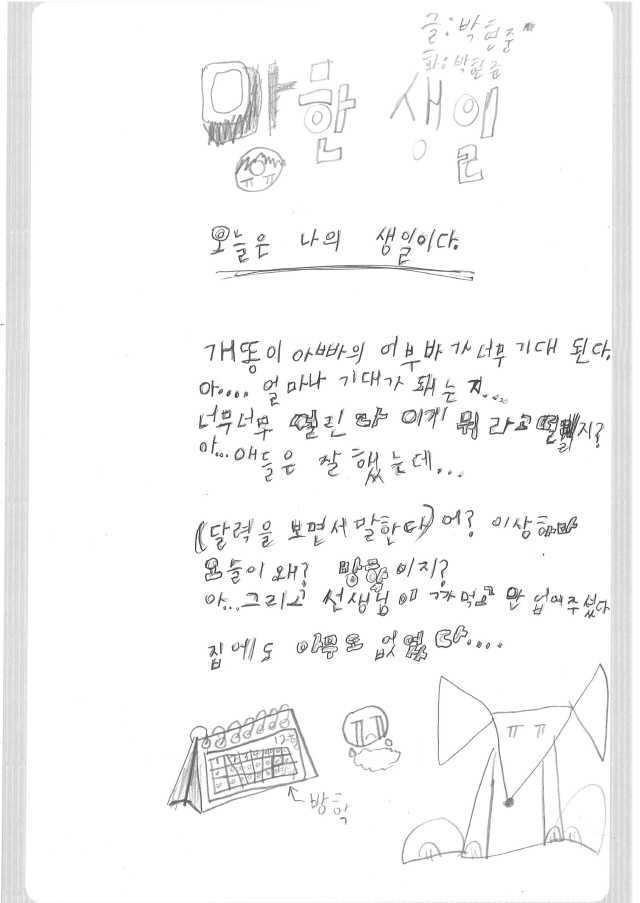 글: 박현준
화: 박현준
망한 생일
오늘은 나의 생일이다.
개똥이 아빠의 어부바가 너무 기대 된다.
아.... 얼마나 기대가 돼는지...
너무너무 떨린다 이게 뭐라고 떨리지?
아... 애들은 잘 했는데...
(달력을 보면서 말한다) 어? 이상하다
오늘이 왜? 방학이지?
아... 그리고 선생님이 까먹고 안 업어주셨다
집에도 아무도 없었다....
12월
방학